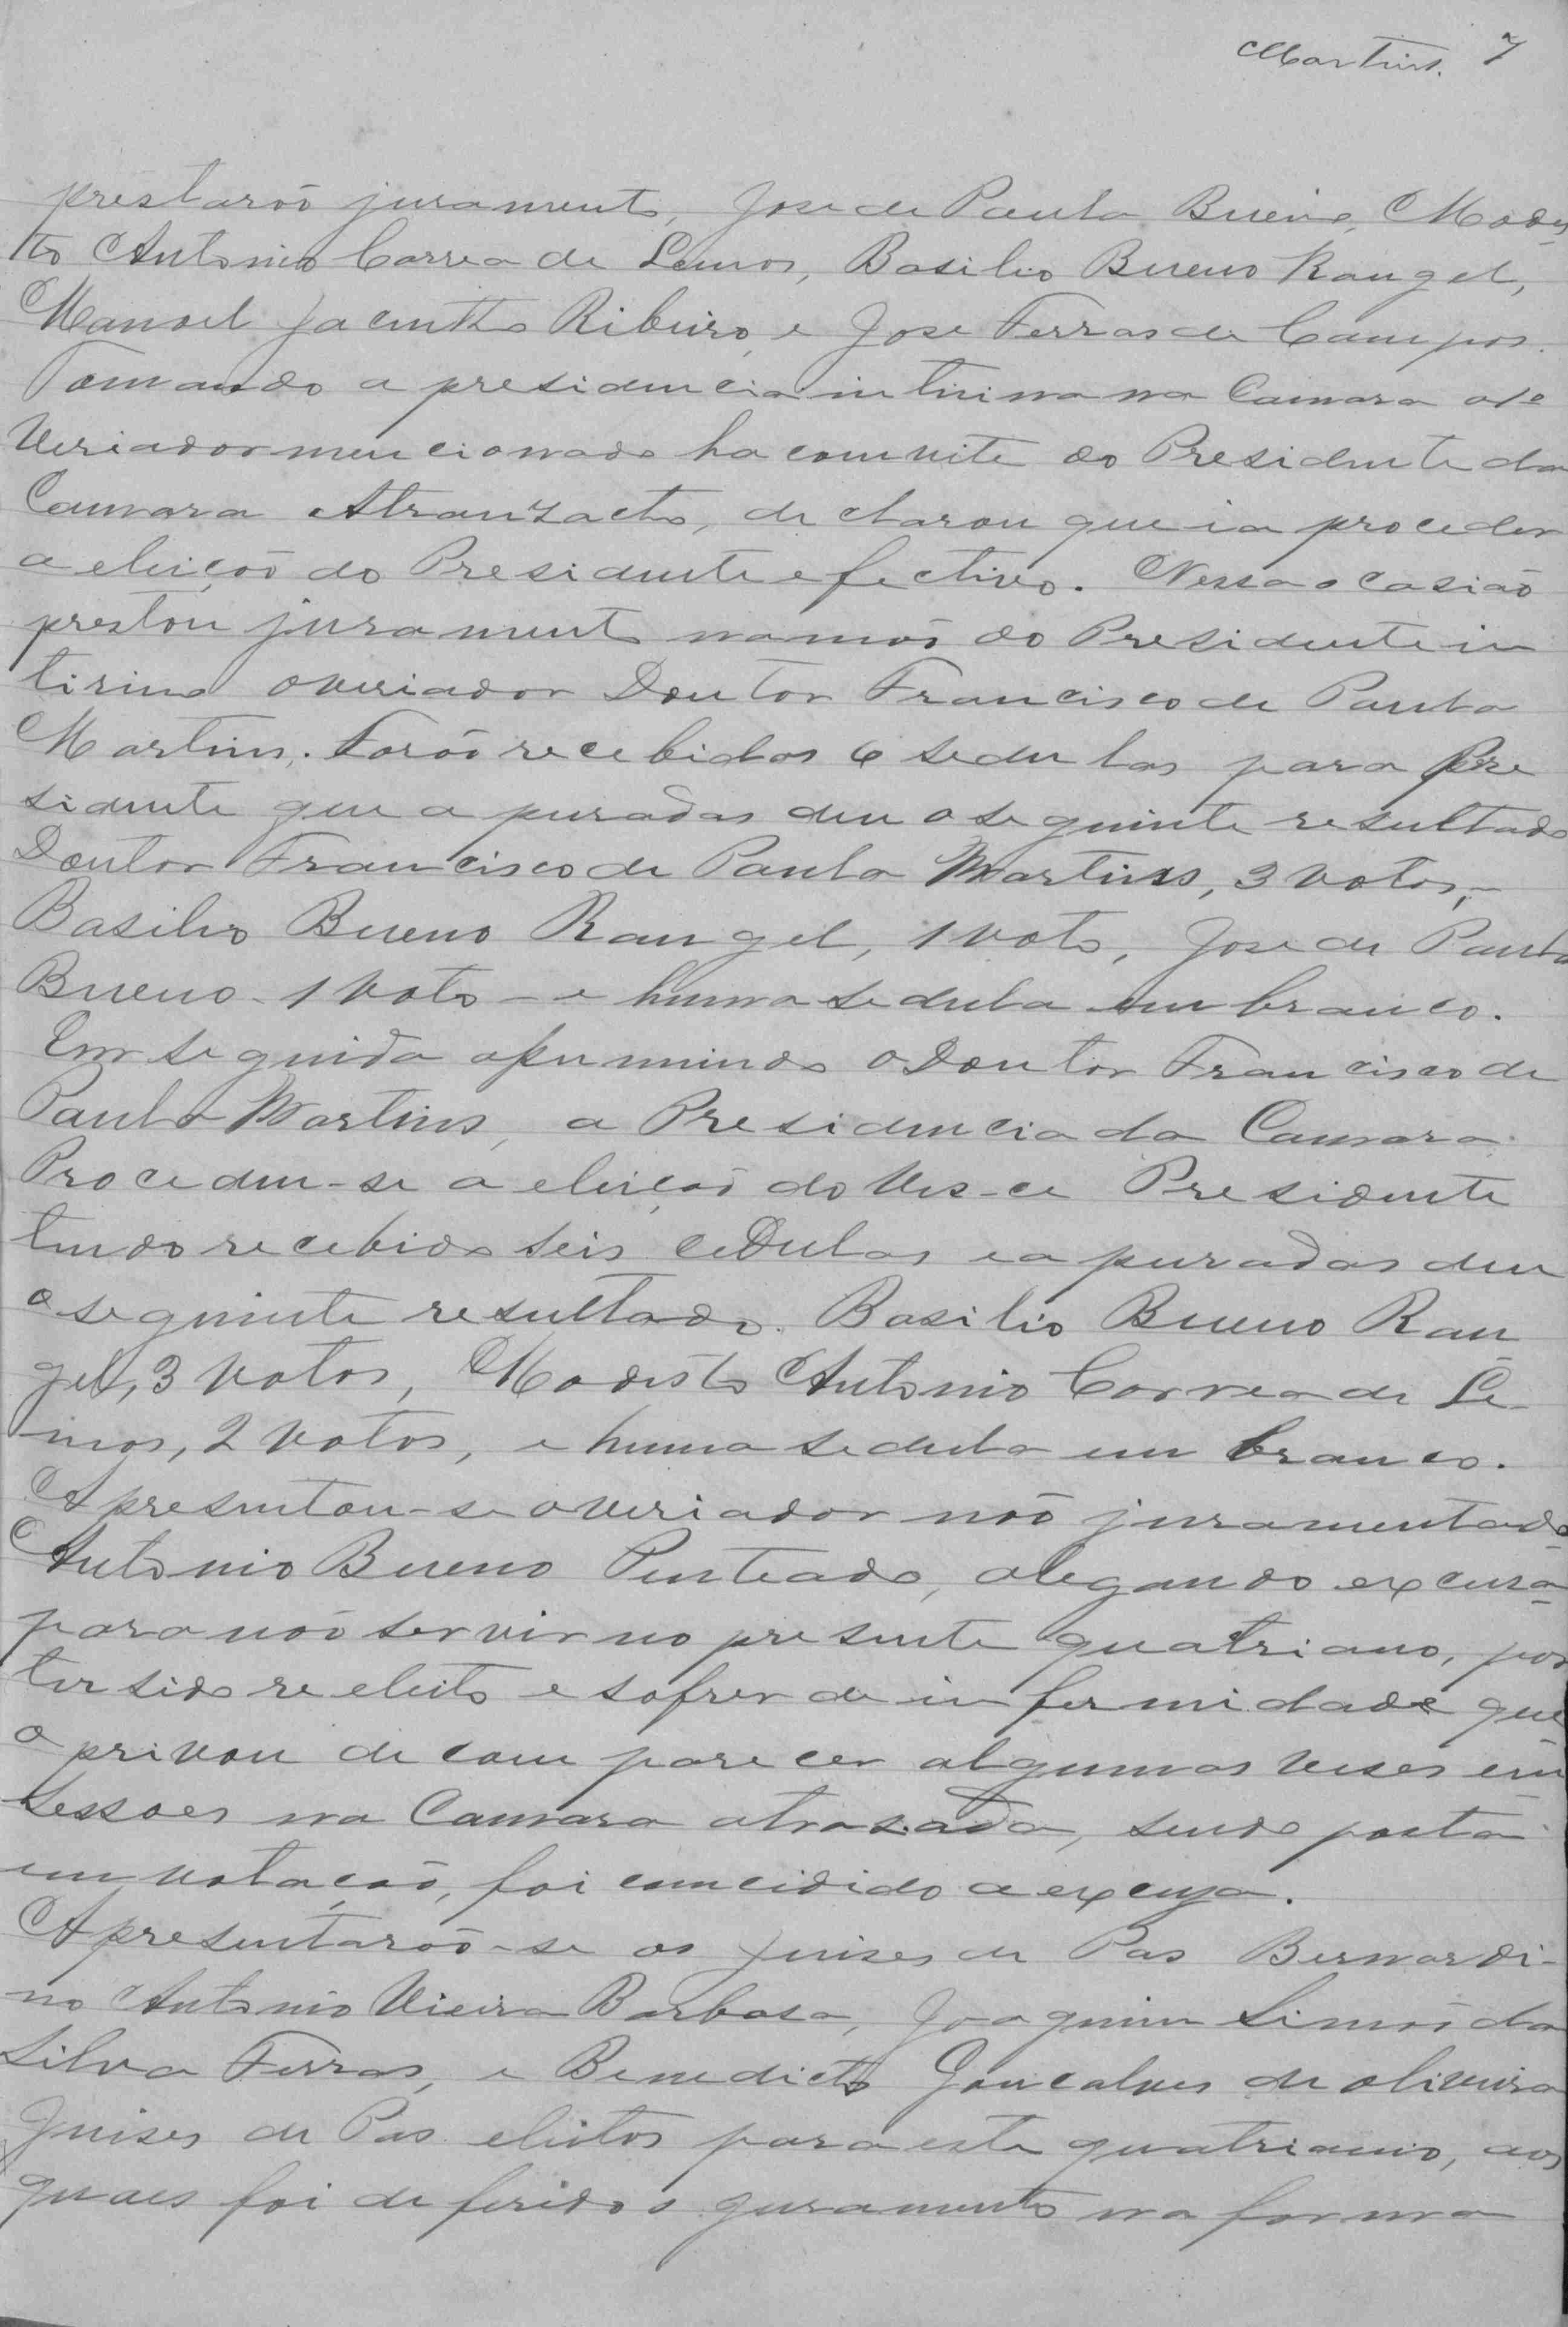 Martins. 7
prestaroõ juramento, Jose de Paula Bueno, Modes
to Antonio Correa de Lemos, Basilio Bueno Rangel,
Manoel Jacintho Ribeiro, e Jose Ferras de Campos.
Tomando a presidencia intirina na Camara o 1º
Veriador mencionado ha comvite do Presidente da
Camara Atranzacta, declarou que ia proceder
a eleiçoõ do Presidente efectivo. Nessa ocasiaõ
prestou juramento na moõ do Presidente in
tirino o veriador Doutor Francisco de Paula
Martins. Foroõ recebidas 6 sedulas para Pre
sidente que apuradas deu o seguinte resultado
Doutor Francisco de Paula Martins, 3 votos,-
Basilio Bueno Rangel, 1 voto, Jose de Paula
Bueno - 1 Voto - e huma sedula em branco.
Em seguida o Doutor Francisco de
Paula Martins, a Presidencia da Camara.
Procedeu-se a eleiçaõ do Vis-ce Presidente
tendo recebido seis ceDulas e apuradas deu
o seguinte resultado. Basilio Bueno Ran
gel, 3 Votos, Modesto Antonio Correa de Le-
mos, 2 Votos, e huma sedula em branco.
Apresentou-se o veriador noõ juramentado
Antonio Bueno Penteado, alegando excusa
para noõ servir no presente quatriano, por
ter sido reeleito e sofrer de infermidade que
o privou de comparecer algumas veses em
sessoes na Camara atrazada, sendo posta
em votaçaõ, foi comcidido a excuza.
Apresentaroõ-se os Juises de Pas Bernardi-
no Antonio Vieira Barbosa, Joaquim Simoõ da
Silva Ferras, e Benedicto Goncalves de oliveira
Juises de Pas eleitos para este quatrianio, aos
quaes foi deferido o juramento na forma